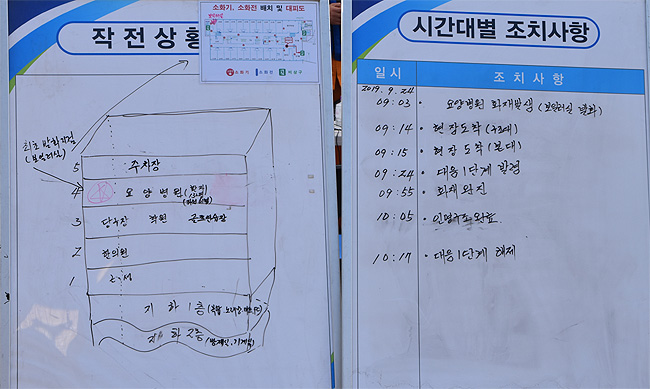 작전상황
소화기, 소화전 배치 및 대피도
소화기 소화전 비상구
최초 발화지점
(보일러실)
5 주차장
4 요양병원
3 당구장 학원 골프연습장
2 한의원
1
지하 1층
지하 2층
시간대별 조치사항
일시 조치사항
2019. 9. 24
09:03 · 요양병원 화재발생 (보일러실 발화)
09:14 · 현장도착
09:15 · 현장도착 (본대)
09:24 · 대응 1단계 발령
09:55 · 화재완진
10:05 · 인명구조 완료
10:17 · 대응 1단계 해제